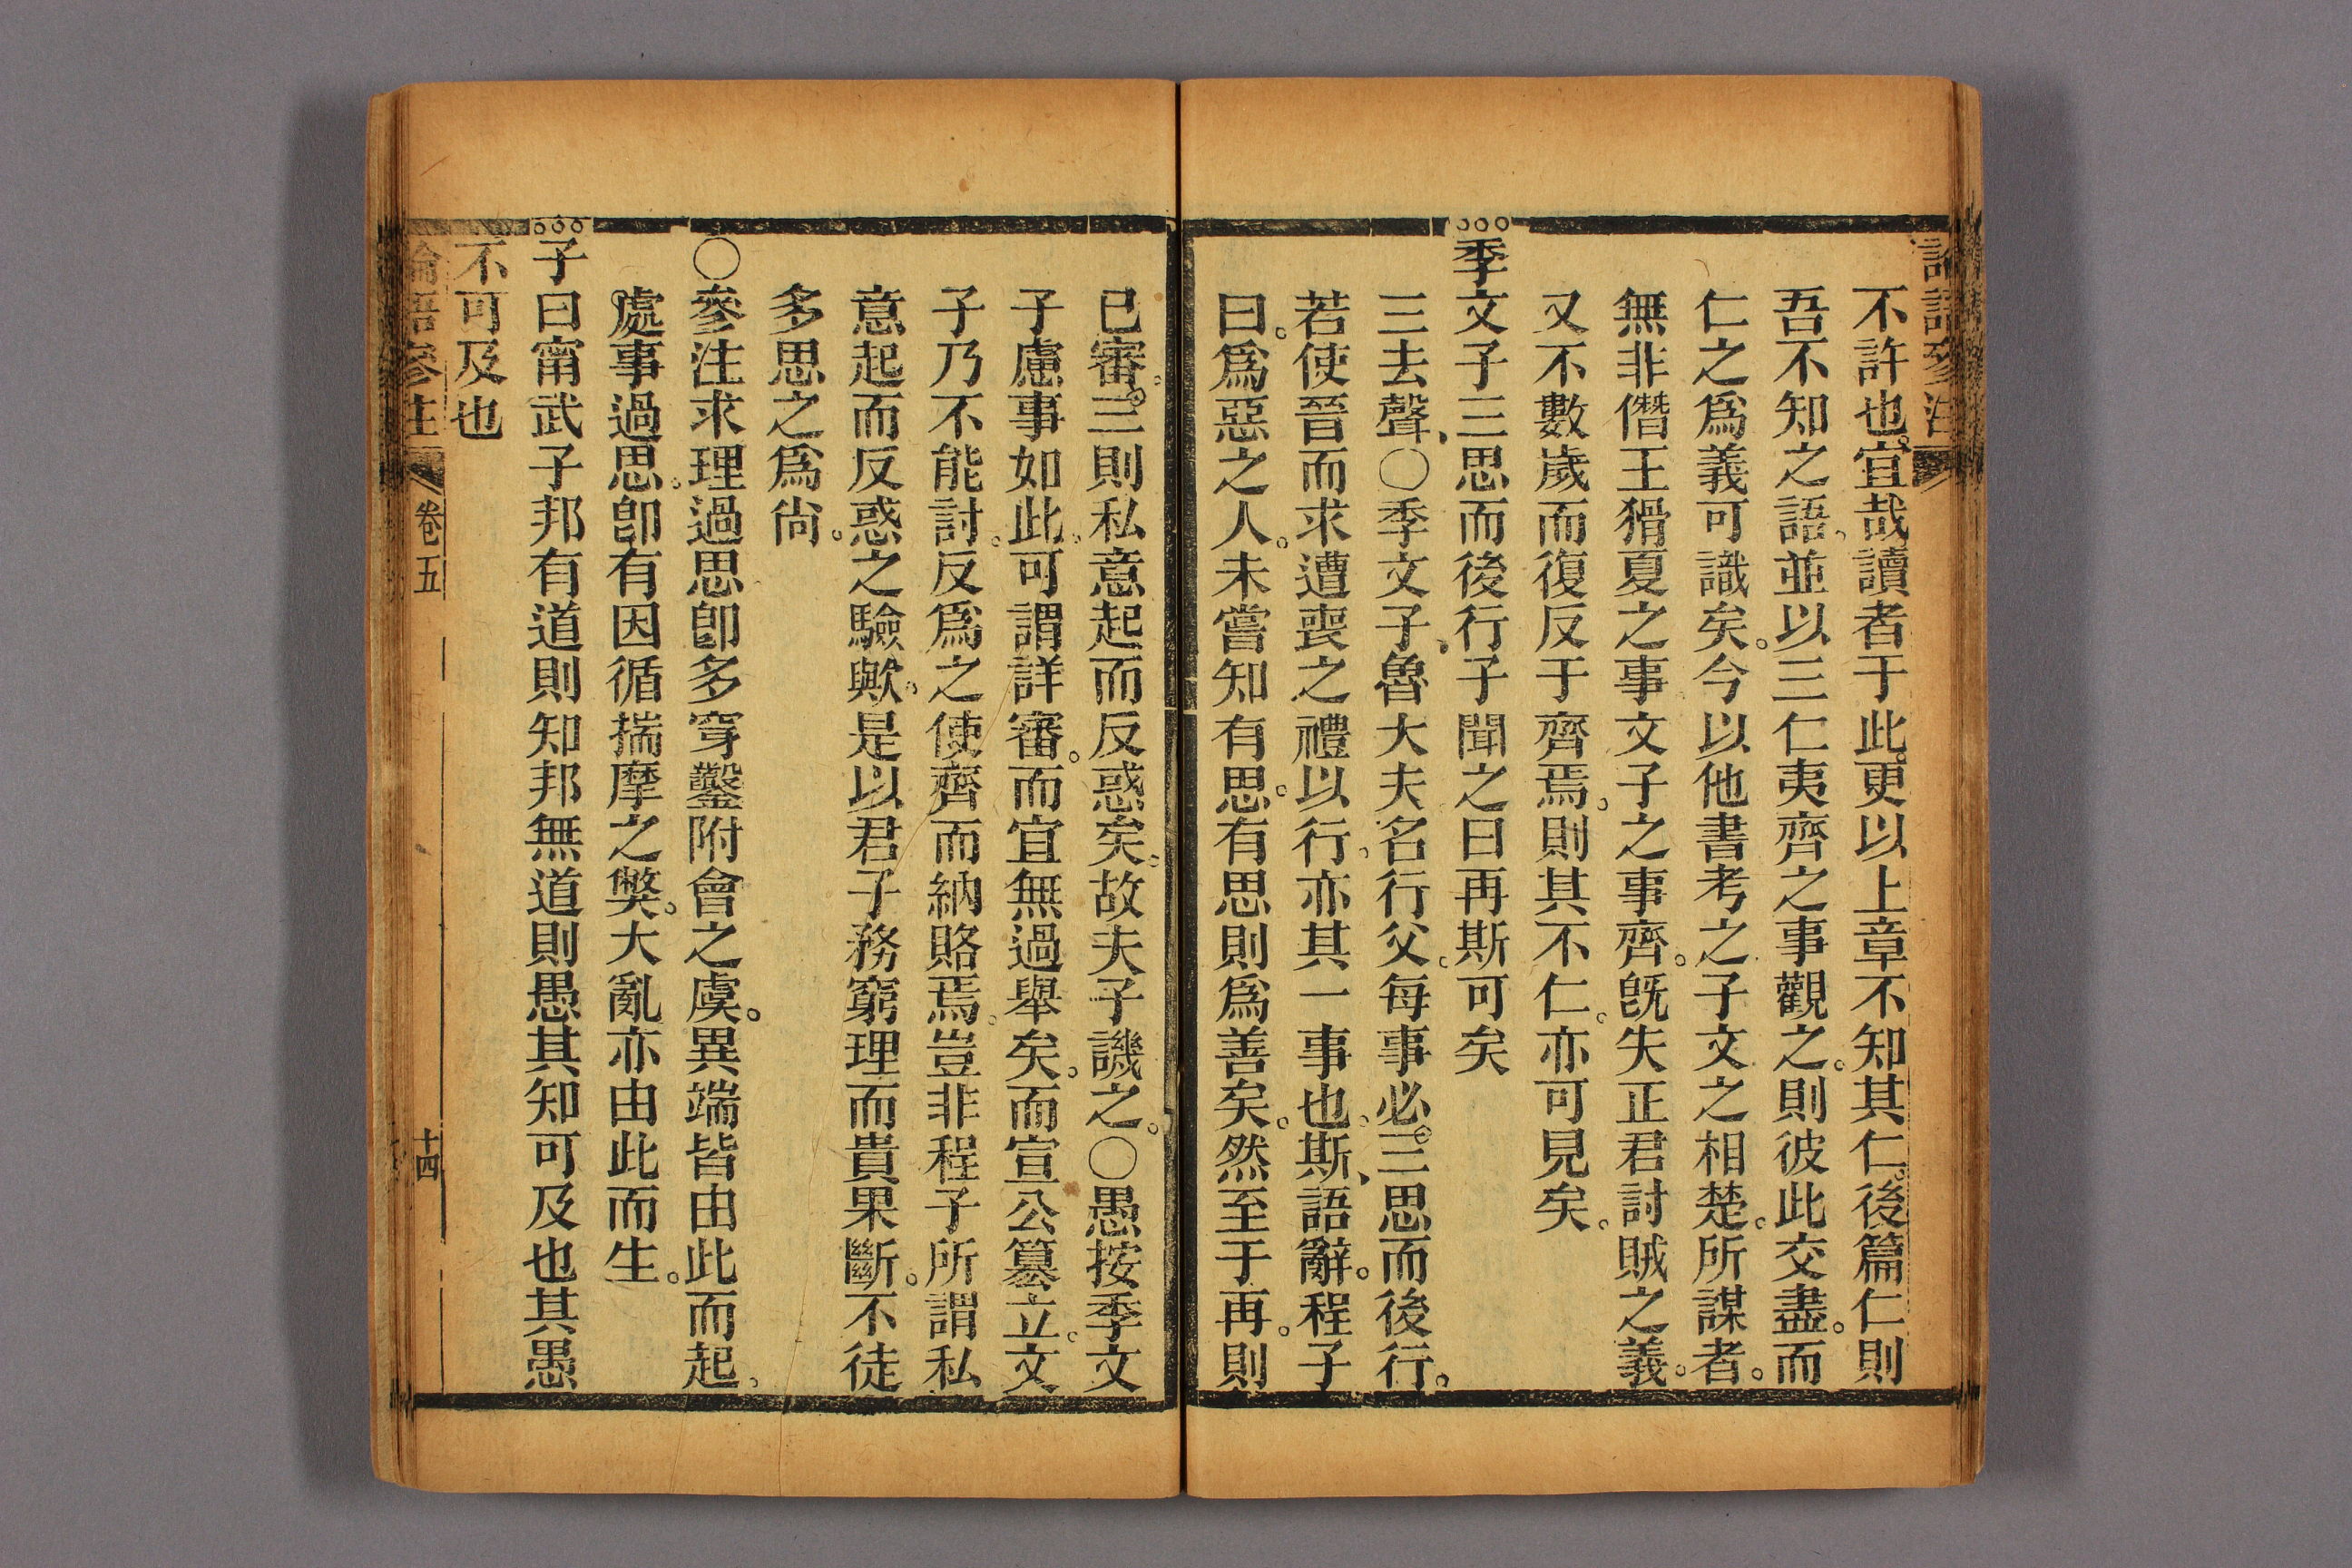 語參注
不許也宜哉讀者于此更以上章不知其仁後篇仁則
吾不知之語並以三仁夷齊之事觀之則彼此交盡而
仁之爲義可識矣今以他書考之子文之相楚所謀者
無非僭王猾夏之事文子之事齊旣失正君討賊之義
又不數歲而復反于齊焉則其不仁亦可見矣
季文子三思而後行子聞之曰再斯可矣
三去聲〇季文子魯大夫名行父每事必三思而後行
若使晉而求遭喪之禮以行亦其一事也斯語辭程子
曰爲惡之人未嘗知有思有思則爲善矣然至于再則
已審三則私意起而反惑矣故夫子譏之〇愚按季文
子慮事如此可謂詳審而宜無過舉矣而宣公簒立文
子乃不能討反爲之使齊而納賂焉豈非程子所謂私
意起而反惑之驗歟是以君子務窮理而貴果斷不徒
多思之爲尙
〇參注求理過思卽多穿鑿附會之虞異端皆由此而起
處事過思卽有因循揣摩之獘大亂亦由此而生
子曰甯武子邦有道則知邦無道則愚其知可及也其愚
不可及也
論語參注 卷五 十四